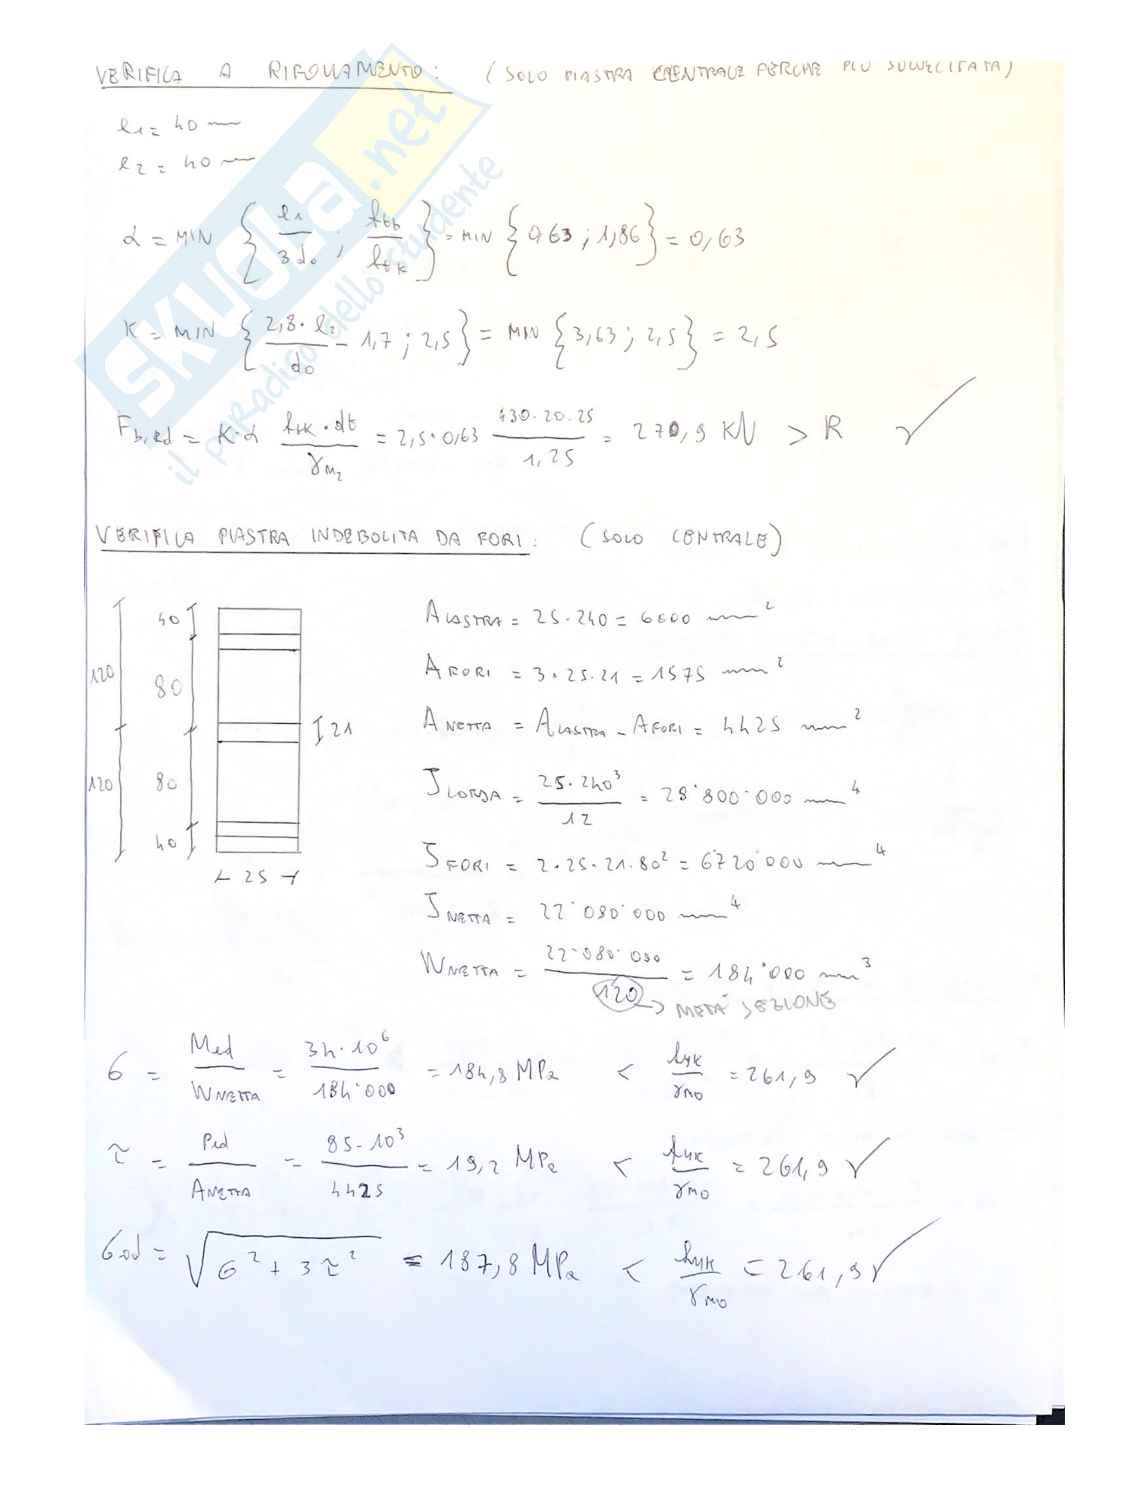 VERIFICA A RIFOLLAMENTO: (SOLO PIASTRA CENTRALE PERCHÉ PIÙ SOLLECITATA)
e1 = 40 mm
e2 = 40 mm
α = MIN { e1 / 3d0 ; ftb / ftk } = MIN { 0,63 ; 1,86 } = 0,63
K = MIN { 2,8·e2 / d0 - 1,7 ; 2,5 } = MIN { 3,63 ; 2,5 } = 2,5
Fb,Rd = K·α ftk·dt / γM2 = 2,5·0,63 430·20·25 / 1,25 = 270,9 KN > R ✓
VERIFICA PIASTRA INDEBOLITA DA FORI: (SOLO CENTRALE)
120
120
40
80
80
40
21
25
ALASTRA = 25·240 = 6000 mm²
AFORI = 3·25·21 = 1575 mm²
ANETTA = ALASTRA - AFORI = 4425 mm²
JLORDA = 25·240³ / 12 = 28'800'000 mm⁴
JFORI = 2·25·21·80² = 6720'000 mm⁴
JNETTA = 22'080'000 mm⁴
WNETTA = 22'080'000 / 120 = 184'000 mm³
→ METÀ SEZIONE
σ = Med / WNETTA = 34·10⁶ / 184'000 = 184,8 MPa < fyk / γM0 = 261,9 ✓
τ = Ped / ANETTA = 85·10³ / 4425 = 19,2 MPa < fyk / γM0 = 261,9 ✓
σid = √σ² + 3τ² = 187,8 MPa < fyk / γM0 = 261,9 ✓
SKUOLA.net
il paradiso dello studente